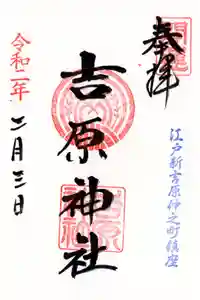 奉拝
江戸新吉原仲之町鎮座
吉原神社
令和二年
二月三日